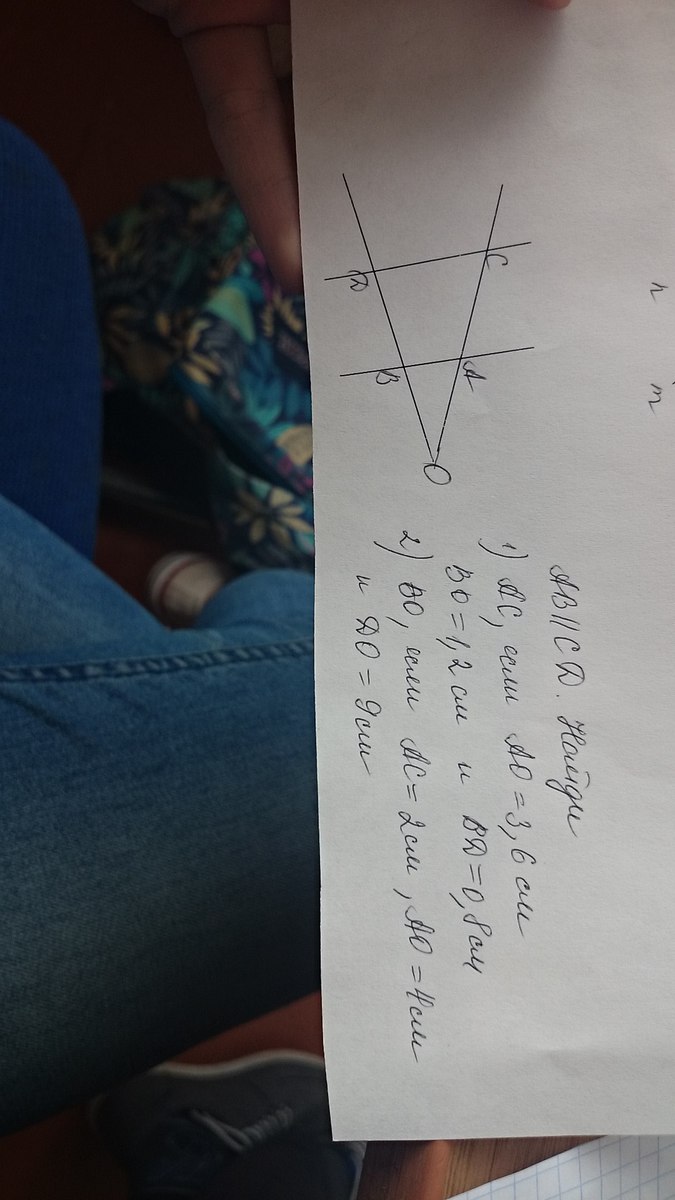 n
m
C
A
D
B
O
AB||CD. Найди
1) AC, если AO = 3,6 см
BO = 1,2 см и BD = 0,8 см
2) BO, если AC = 2 см, AO = 4 см
и DO = 9 см